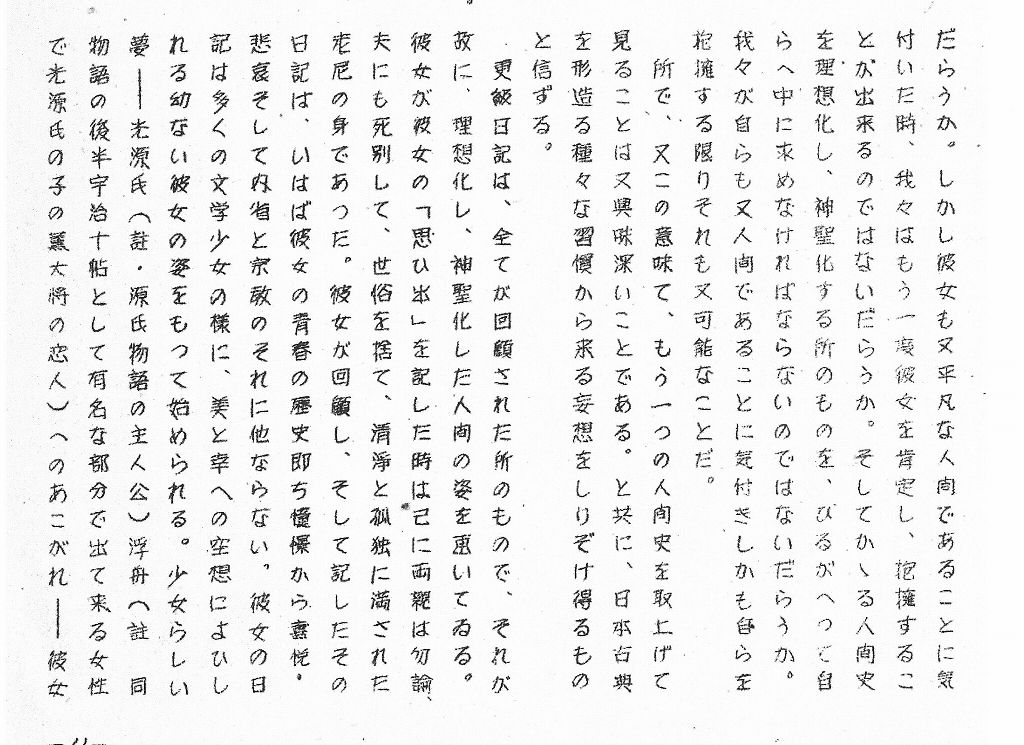 だらうか。しかし彼女も又平凡な人間であることに気
付いた時、我々はもう一度彼女を肯定し、抱擁するこ
とが出来るのではないだらうか。そしてかゝる人間史
を理想化し、神聖化する所のものを、ひるがへつて自
らへ中に求めなければならないのではないだらうか。
我々が自らも又人間であることに気付きしかも自らを
抱擁する限りそれも又可能なことだ。
所で、又この意味て、もう一つの人間史を取上げて
見ることは又興味深いことである。と共に、日本古典
を形造る種々な習慣から来る妄想をしりぞけ得るもの
と信ずる。
更級日記は、全てが回顧された所のもので、それが
故に、理想化し、神聖化した人間の姿を画いてゐる。
彼女が彼女の「思ひ出」を記した時は己に両親は勿論、
夫にも死別して、世俗を捨て、清浄と孤独に満された
老尼の身であつた。彼女が回顧し、そして記したその
日記は、いはば彼女の青春の歴史即ち憧憬から喜悦・
悲哀そして内省と宗教のそれに他ならない。彼女の日
記は多くの文学少女の様に、美と幸への空想によひし
れる幼ない彼女の姿をもつて始められる。少女らしい
夢――光源氏（註・源氏物語の主人公）浮舟（註　同
物語の後半宇治十帖として有名な部分で出て来る女性
で光源氏の子の薫大将の恋人）へのあこがれ――彼女
―11―